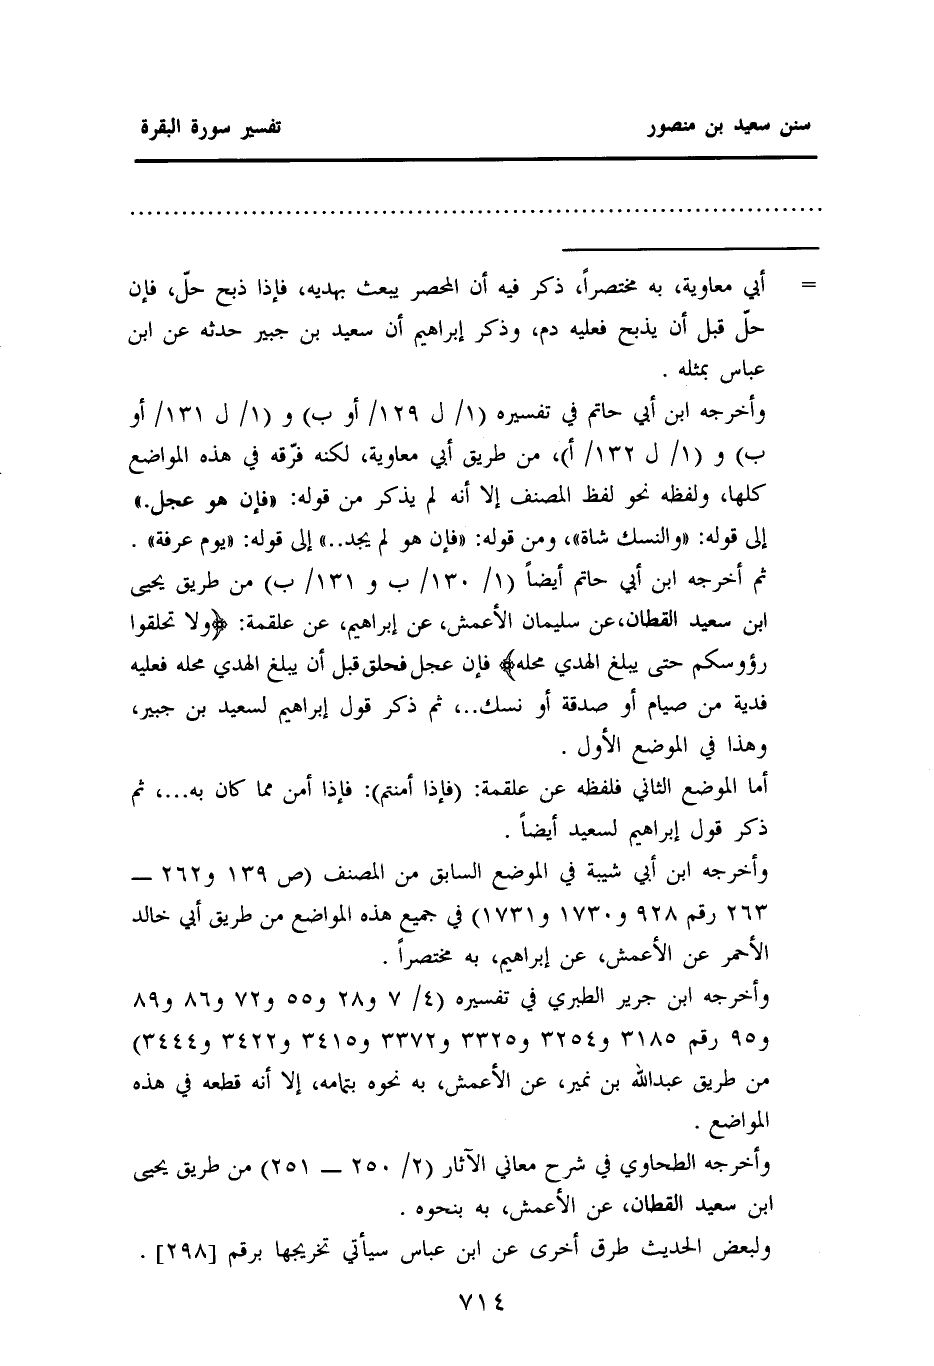 سنن سعيد بن منصور تفسير سورة البقرة
................................................................................
= أبي معاوية، به مختصراً، ذكر فيه أن المحصر يبعث بهديه، فإذا ذبح حلّ، فإن
حلّ قبل أن يذبح فعليه دم، وذكر إبراهيم أن سعيد بن جبير حدثه عن ابن
عباس بمثله .
وأخرجه ابن أبي حاتم في تفسيره (١/ ل ١٢٩/ أو ب) و (١/ ل ١٣١/ أو
ب) و (١/ ل ١٣٢/ أ)، من طريق أبي معاوية، لكنه فرّقه في هذه المواضع
كلها، ولفظه نحو لفظ المصنف إلا أنه لم يذكر من قوله: «فإن هو عجل.»
إلى قوله: «والنسك شاة»، ومن قوله: «فإن هو لم يجد..» إلى قوله: «يوم عرفة» .
ثم أخرجه ابن أبي حاتم أيضاً (١/ ١٣٠/ ب و ١٣١/ ب) من طريق يحيى
ابن سعيد القطان،عن سليمان الأعمش، عن إبراهيم، عن علقمة: ﴿ولا تحلقوا
رؤوسكم حتى يبلغ الهدي محله﴾ فإن عجل فحلق قبل أن يبلغ الهدي محله فعليه
فدية من صيام أو صدقة أو نسك..، ثم ذكر قول إبراهيم لسعيد بن جبير،
وهذا في الموضع الأول .
أما الموضع الثاني فلفظه عن علقمة: (فإذا أمنتم): فإذا أمن مما كان به...، ثم
ذكر قول إبراهيم لسعيد أيضاً .
وأخرجه ابن أبي شيبة في الموضع السابق من المصنف (ص ١٣٩ و٢٦٢ —
٢٦٣ رقم ٩٢٨ و١٧٣٠ و١٧٣١) في جميع هذه المواضع من طريق أبي خالد
الأحمر عن الأعمش، عن إبراهيم، به مختصراً .
وأخرجه ابن جرير الطبري في تفسيره (٤/ ٧ و٢٨ و٥٥ و٧٢ و٨٦ و٨٩
و٩٥ رقم ٣١٨٥ و٣٢٥٤ و٣٣٢٥ و٣٣٧٢ و٣٤١٥ و٣٤٢٢ و٣٤٤٤)
من طريق عبدالله بن نمير، عن الأعمش، به نحوه بتمامه، إلا أنه قطعه في هذه
المواضع .
وأخرجه الطحاوي في شرح معاني الآثار (٢/ ٢٥٠ — ٢٥١) من طريق يحيى
ابن سعيد القطان، عن الأعمش، به بنحوه .
ولبعض الحديث طرق أخرى عن ابن عباس سيأتي تخريجها برقم [٢٩٨] .
٧١٤